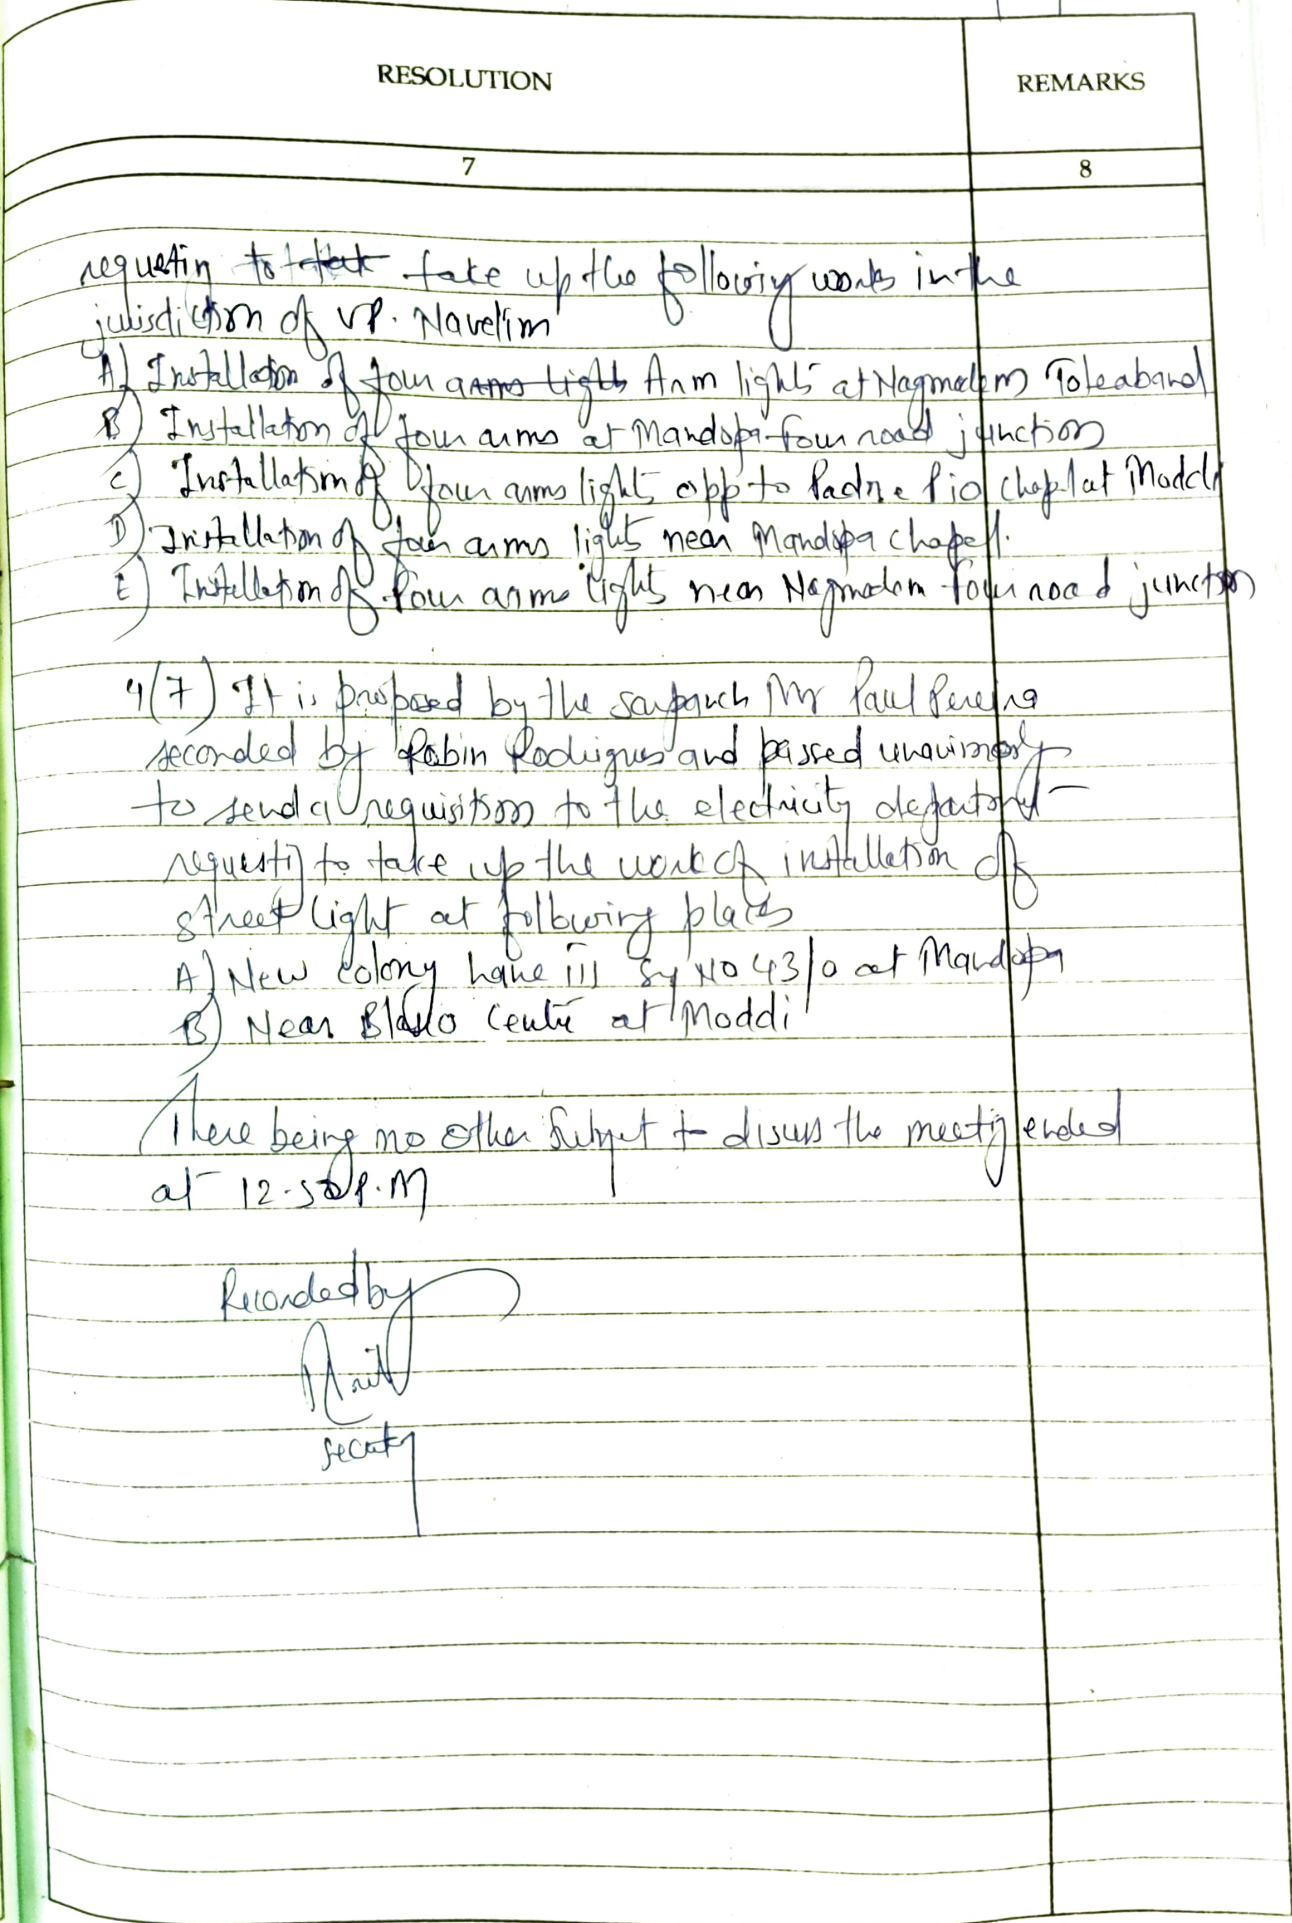 RESOLUTION REMARKS
7 8
requestin to take up the following works in the
jurisdiction of VP. Navelim
A) Installation of four arms lights Arm lights at Nagmodem Toleaband
B) Installation of four arms at Mandopa four road junction
C) Installation of four arms lights opp to Padre Pio chapel at Moddi
D) Installation of four arms lights near Mandopa chapel.
E) Installation of four arms lights near Nagmodem four road junction
4(7) It is proposed by the sarpanch Mr Paul Pereira
seconded by Robin Rodrigues and passed unanimously
to send a requisition to the electricity department
requesting to take up the work of installation of
street light at following places
A) New colony lane iii Sy No 43/0 at Mandopa
B) Near Centre at Moddi
There being no other Subject to discuss the meeting ended
at 12.50 P.M
Recorded by
Secretary